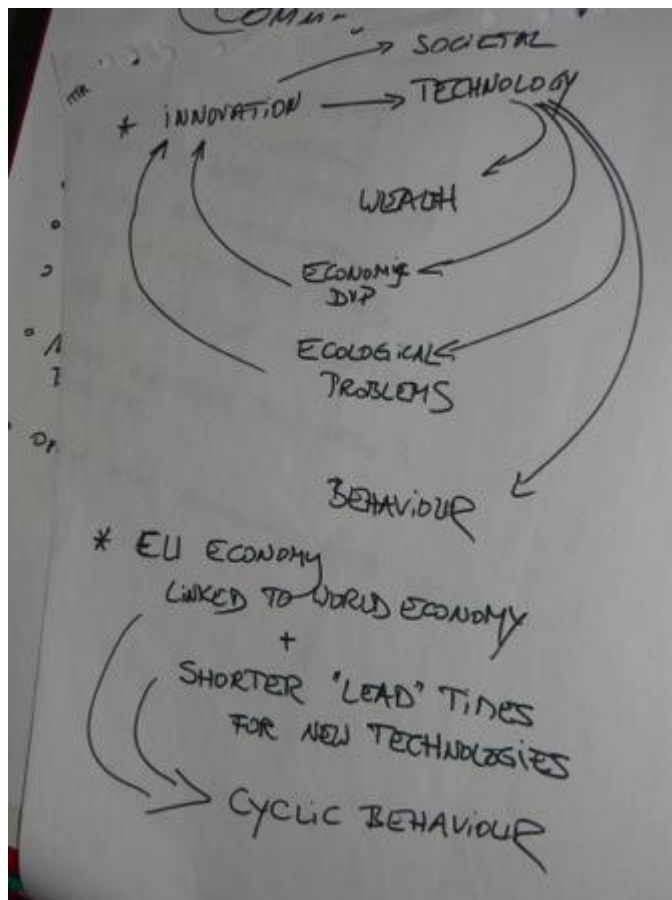 SOCIETAL
* INNOVATION → TECHNOLOGY
WEALTH
ECONOMIC
DVP
ECOLOGICAL
PROBLEMS
BEHAVIOUR
* EU ECONOMY
LINKED TO WORLD ECONOMY
+
SHORTER "LEAD" TIMES
FOR NEW TECHNOLOGIES
CYCLIC BEHAVIOUR